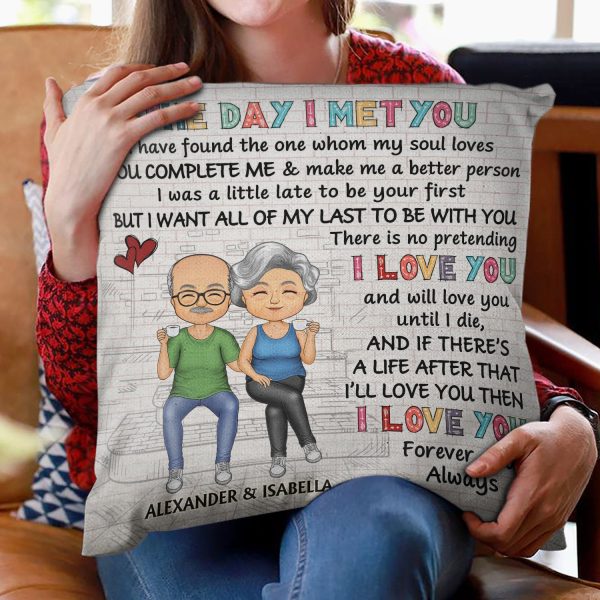 THE DAY I MET YOU
have found the one whom my soul loves
YOU COMPLETE ME & make me a better person
I was a little late to be your first
BUT I WANT ALL OF MY LAST TO BE WITH YOU
There is no pretending
I LOVE YOU
and will love you
until I die,
AND IF THERE'S
A LIFE AFTER THAT
I'LL LOVE YOU THEN
I LOVE YOU
Forever
Always
ALEXANDER & ISABELLA